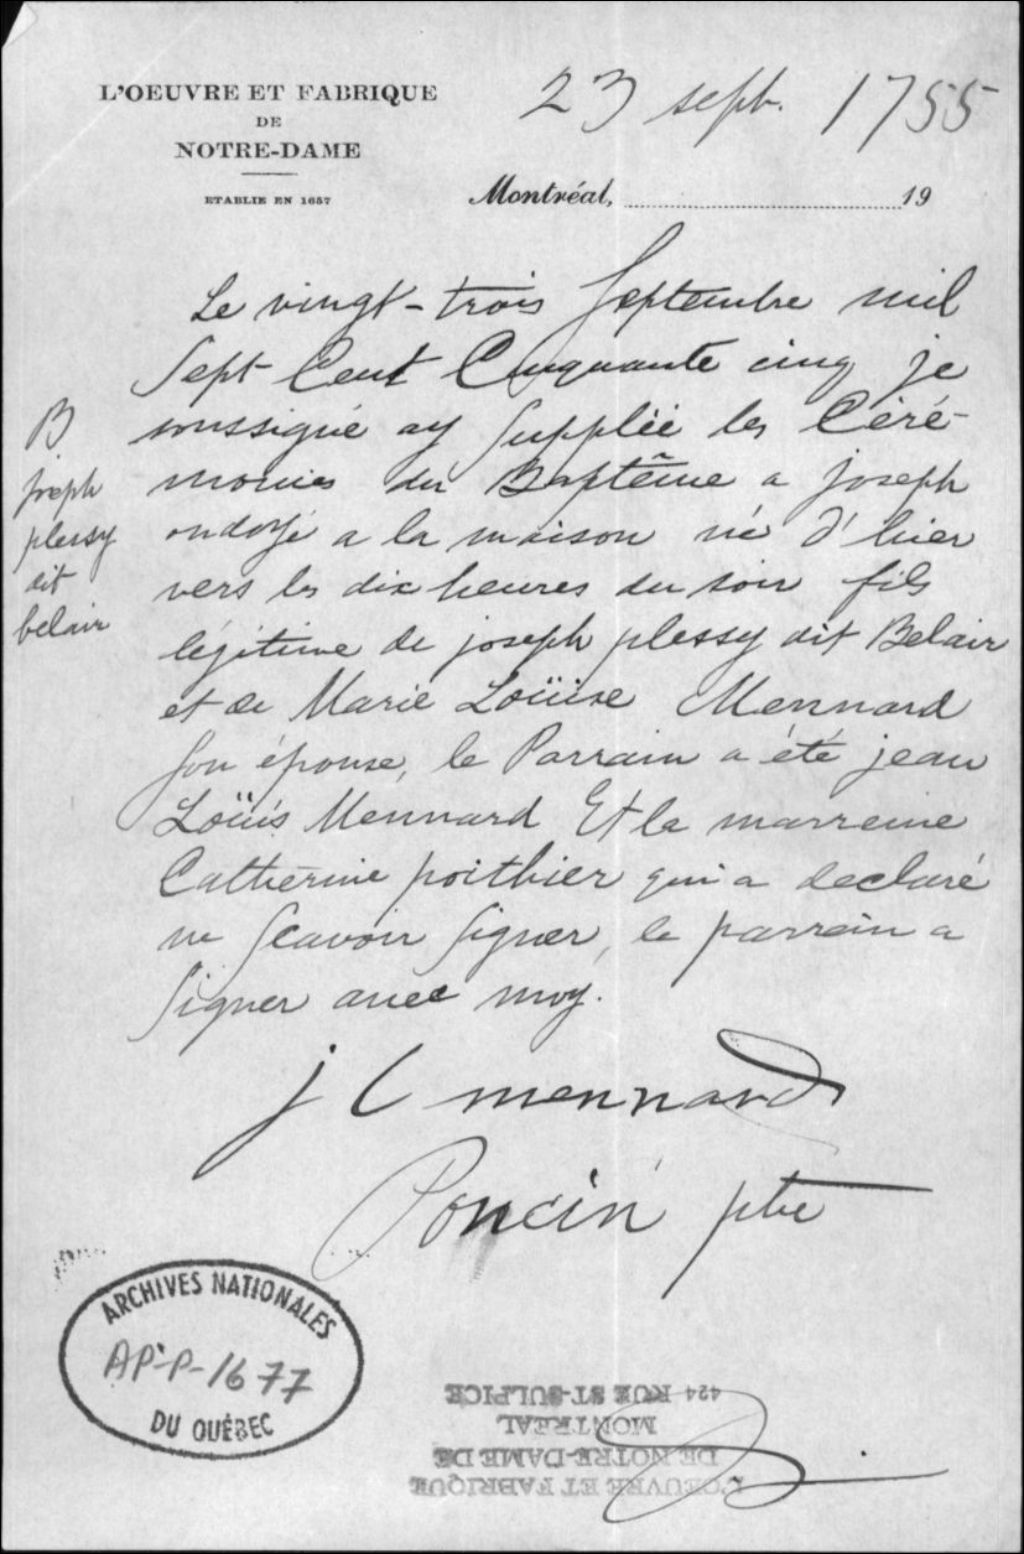 L'OEUVRE ET FABRIQUE
DE
NOTRE-DAME
ETABLIE EN 1657
23 sept. 1755
Montréal, 19
Le vingt-trois Septembre mil
Sept Cent Cinquante cinq je
soussigné ay Supplié les Céré-
monies du Baptême a joseph
ondoyé a la maison né d'hier
vers les dix heures du soir fils
légitime de joseph plessy dit Belair
et de Marie Loüise Mennard
Son épouse, le Parrain a été jean
Loüis Mennard Et la marreine
Catherine poithier qui a declaré
ne Scavoir Signer, le parrein a
Signer avec moy.
j L mennard
Poncin ptre
B
joseph
plessy
dit
belair
ARCHIVES NATIONALES
AP-P-1677
DU QUÉBEC
L'OEUVRE ET FABRIQUE
DE NOTRE-DAME DE
MONTREAL
424 RUE ST-SULPICE